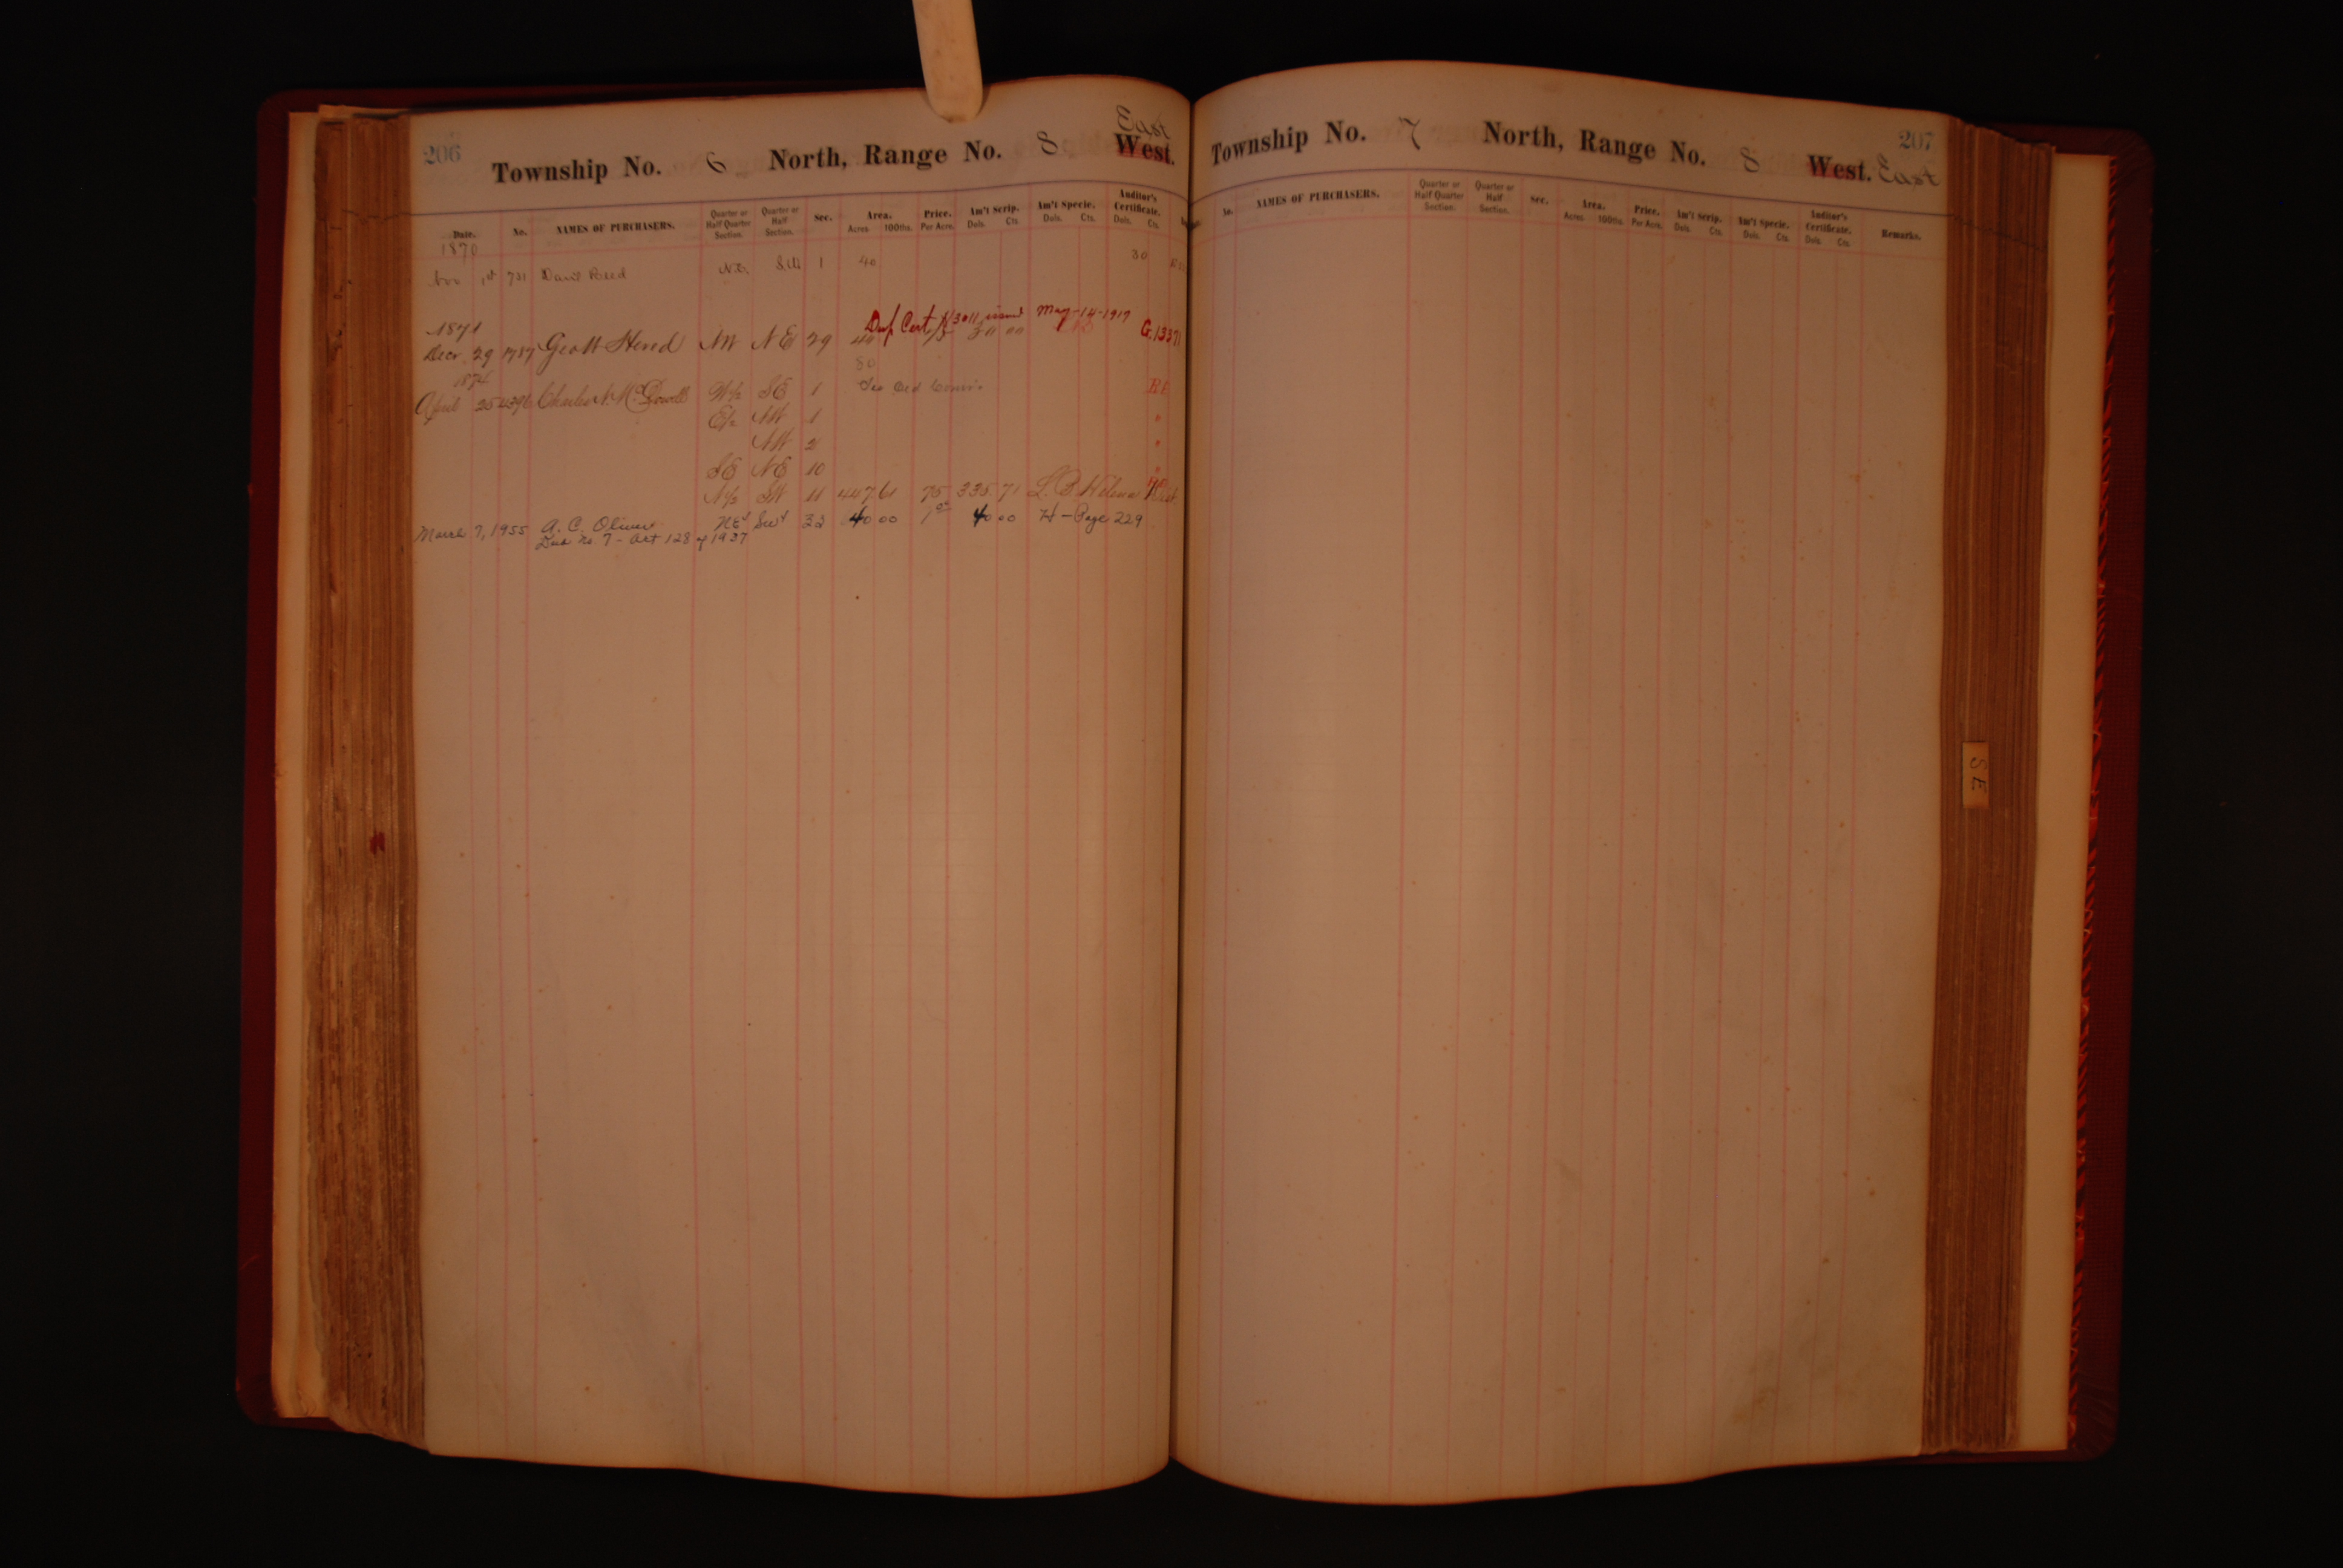 206
East
Township No. 6 North, Range No. 8 West.
Date. No. NAMES OF PURCHASERS. Quarter or Half Quarter Section. Quarter or Half Section. Sec. Area. Acres 100ths. Price. Per Acre. Am't Scrip. Dols. Cts. Am't Specie. Dols. Cts. Auditor's Certificate. Dols. Cts.
1870
Nov 1st 731 Reed N.E. S.W. 1 40 30
Dup Cert # 3011 issued May-14-1917
1871
Decr 29 1787 Geo W Hered NW NE 29 40 75 30 00 G.1337
80
1874
April 25 4396 Charles N. McDowell W½ SE 1
E½ NW 1 "
NW 2 "
SE NE 10 "
N½ SW 11 447 61 75 335 71 L. B. Helena
March 7, 1955 A. C. Oliver NE4 Sw4 32 40 00 1.00 40 00 H - Page 229
No. 7 - Act 128 of 1937
207
Township No. 7 North, Range No. 8 West. East
No. NAMES OF PURCHASERS. Quarter or Half Quarter Section. Quarter or Half Section. Sec. Area. Acres 100ths. Price. Per Acre. Am't Scrip. Dols. Cts. Am't Specie. Dols. Cts. Auditor's Certificate. Dols. Cts. Remarks.
SE